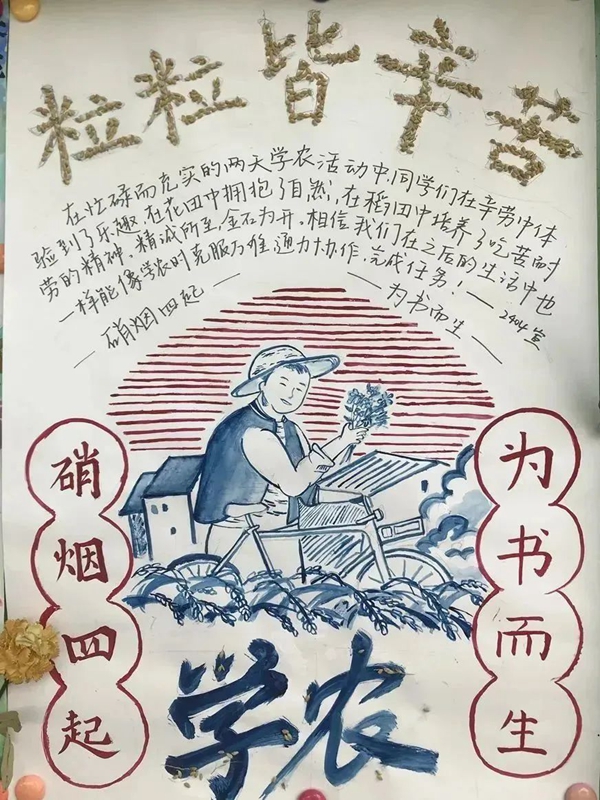 粒粒皆辛苦
在忙碌而充实的两天学农活动中,同学们在辛劳中体
验到了乐趣,在花田中拥抱了自然,在稻田中培养了吃苦耐
劳的精神。精诚所至,金石为开。相信我们在之后的生活中也
一样能像学农时克服万难,通力协作,完成任务!——2404宣
——硝烟四起——
——为书而生——
硝烟四起
为书而生
学农